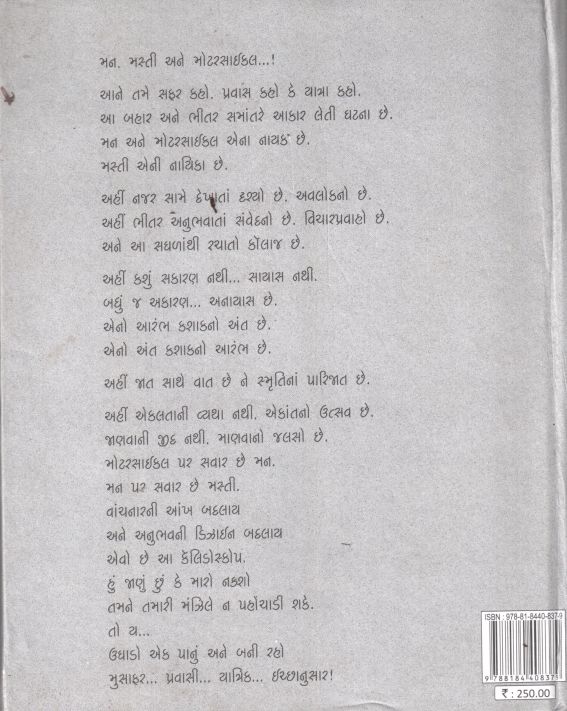 મન. મસ્તી અને મોટરસાઈકલ...!
આને તમે સફર કહો. પ્રવાસ કહો કે યાત્રા કહો.
આ બહાર અને ભીતર સમાંતરે આકાર લેતી ઘટના છે.
મન અને મોટરસાઈકલ એના નાયક છે.
મસ્તી એની નાયિકા છે.
અહીં નજર સામે દેખાતાં દશ્યો છે. અવલોકનો છે.
અહીં ભીતર અનુભવાતાં સંવેદનો છે. વિચારપ્રવાહો છે.
અને આ સઘળાંથી રચાતો કૉલાજ છે.
અહીં કશું સકારણ નથી... સાયાસ નથી.
બધું જ અકારણ... અનાયાસ છે.
એનો આરંભ કશાકનો અંત છે.
એનો અંત કશાકનો આરંભ છે.
અહીં જાત સાથે વાત છે ને સ્મૃતિનાં પારિજાત છે.
અહીં એકલતાની વ્યથા નથી. એકાંતનો ઉત્સવ છે.
જાણવાની જીદ નથી. માણવાનો જલસો છે.
મોટરસાઈકલ પર સવાર છે મન.
મન પર સવાર છે મસ્તી.
વાંચનારની આંખ બદલાય
અને અનુભવની ડિઝાઈન બદલાય
એવો છે આ કૅલિડોસ્કોપ.
હું જાણું છું કે મારો નકશો
તમને તમારી મંઝિલે ન પહોંચાડી શકે.
તો ય...
ઉઘાડો એક પાનું અને બની રહો
મુસાફર... પ્રવાસી... યાત્રિક... ઈચ્છાનુસાર!
ISBN : 978-81-8440-837-9
9 788184 408379
₹ : 250.00